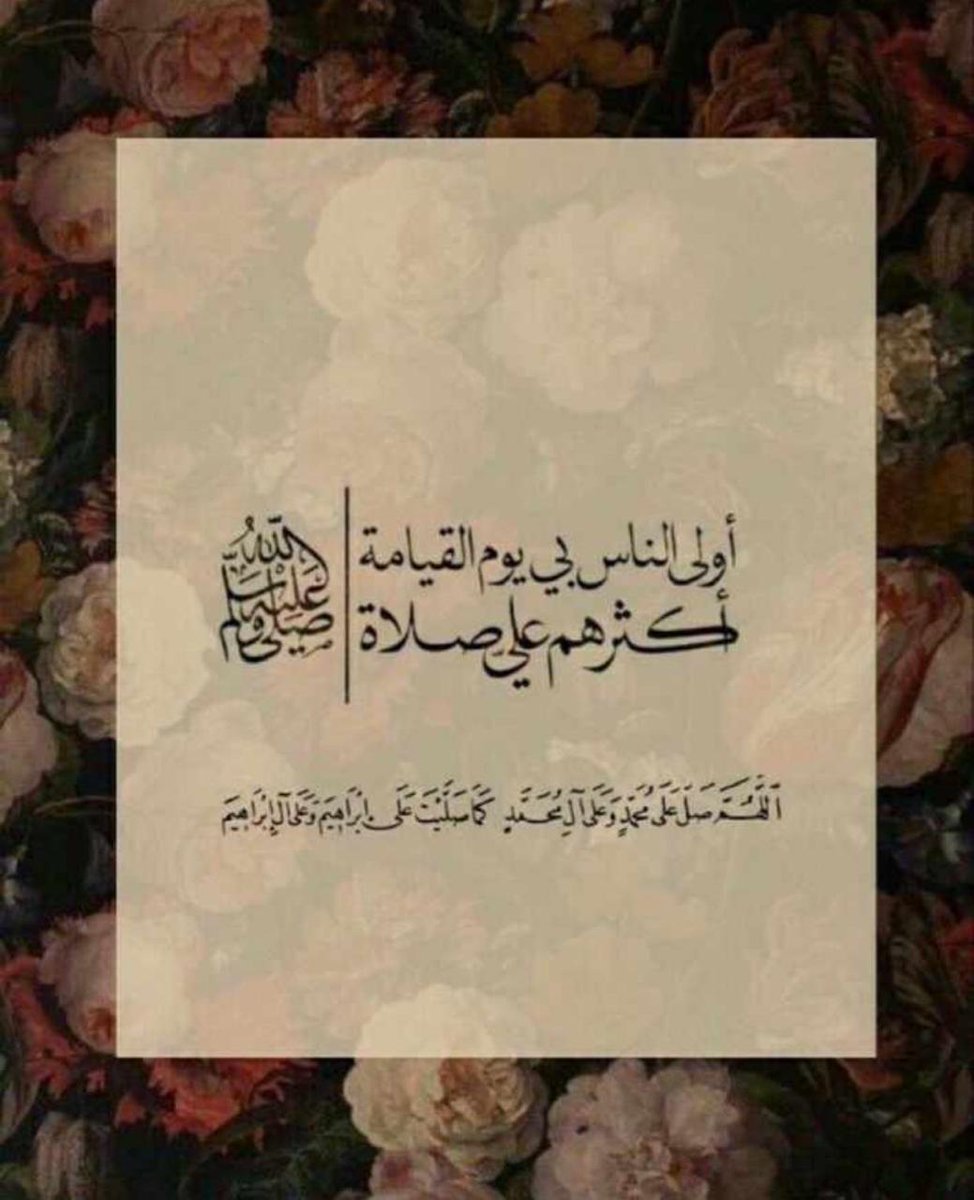 أولى الناس بي يوم القيامة
أكثرهم علي صلاة
صلى الله عليه وسلم
اَللّٰهُمَّ صَلِّ عَلَى مُحَمَّدٍ وَعَلَى آلِ مُحَمَّدٍ كَمَا صَلَّيْتَ عَلَى إِبْرَاهِيمَ وَعَلَى آلِ إِبْرَاهِيمَ